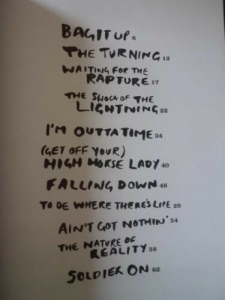 BAG IT UP 6
THE TURNING 12
WAITING FOR THE
RAPTURE 17
THE SHOCK OF THE
LIGHTNING 22
I'M OUTTA TIME 34
(GET OFF YOUR)
HIGH HORSE LADY 40
FALLING DOWN 48
TO BE WHERE THERE'S LIFE 29
AIN'T GOT NOTHIN' 54
THE NATURE OF
REALITY 58
SOLDIER ON 62